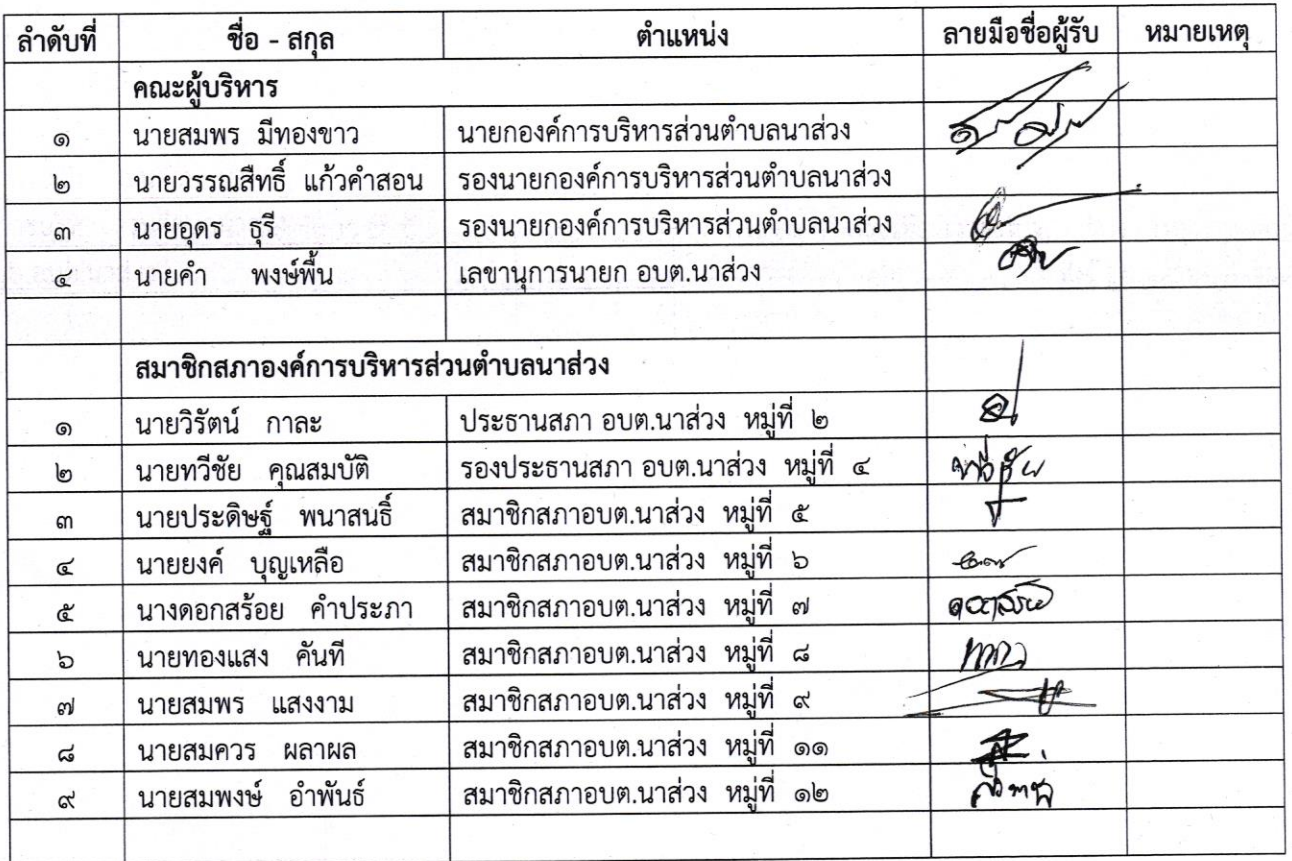 ลำดับที่ ชื่อ - สกุล ตำแหน่ง ลายมือชื่อผู้รับ หมายเหตุ
คณะผู้บริหาร
๑ นายสมพร มีทองขาว นายกองค์การบริหารส่วนตำบลนาส่วง
๒ นายวรรณสืทธิ์ แก้วคำสอน รองนายกองค์การบริหารส่วนตำบลนาส่วง
๓ นายอุดร ธุรี รองนายกองค์การบริหารส่วนตำบลนาส่วง
๔ นายคำ พงษ์พื้น เลขานุการนายก อบต.นาส่วง
สมาชิกสภาองค์การบริหารส่วนตำบลนาส่วง
๑ นายวิรัตน์ กาละ ประธานสภา อบต.นาส่วง หมู่ที่ ๒
๒ นายทวีชัย คุณสมบัติ รองประธานสภา อบต.นาส่วง หมู่ที่ ๔ ทวีชัย
๓ นายประดิษฐ์ พนาสนธิ์ สมาชิกสภาอบต.นาส่วง หมู่ที่ ๕
๔ นายยงค์ บุญเหลือ สมาชิกสภาอบต.นาส่วง หมู่ที่ ๖
๕ นางดอกสร้อย คำประภา สมาชิกสภาอบต.นาส่วง หมู่ที่ ๗
๖ นายทองแสง คันที สมาชิกสภาอบต.นาส่วง หมู่ที่ ๘
๗ นายสมพร แสงงาม สมาชิกสภาอบต.นาส่วง หมู่ที่ ๙
๘ นายสมควร ผลาผล สมาชิกสภาอบต.นาส่วง หมู่ที่ ๑๑
๙ นายสมพงษ์ อำพันธ์ สมาชิกสภาอบต.นาส่วง หมู่ที่ ๑๒